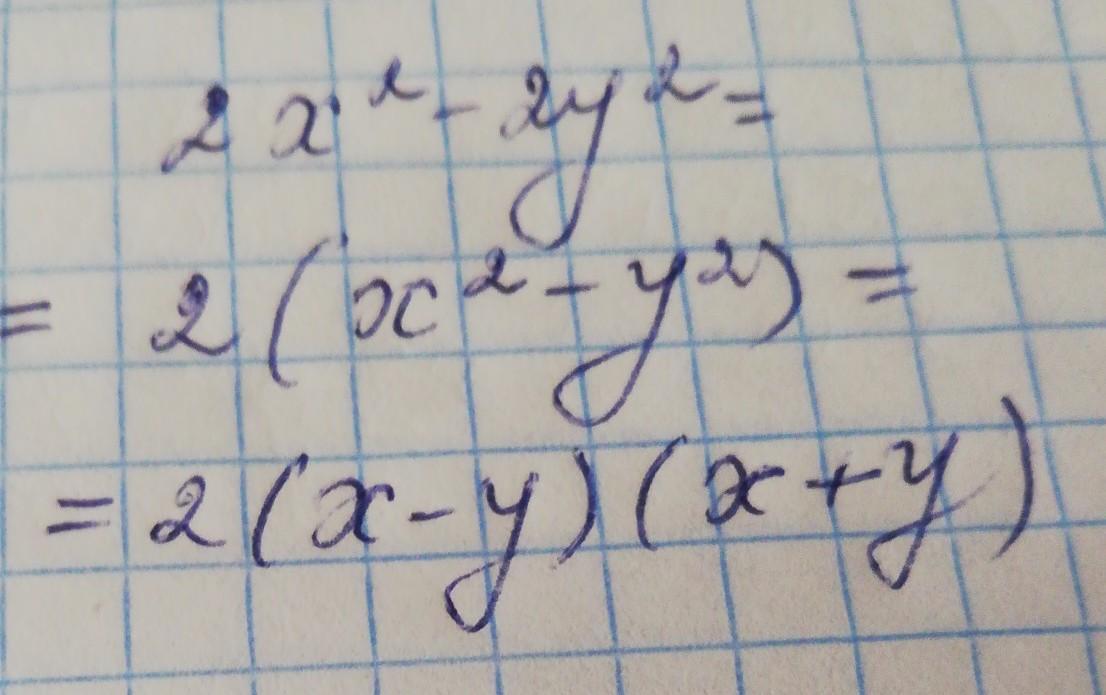 2x² - 2y² =
= 2(x² - y²) =
= 2(x - y)(x + y)